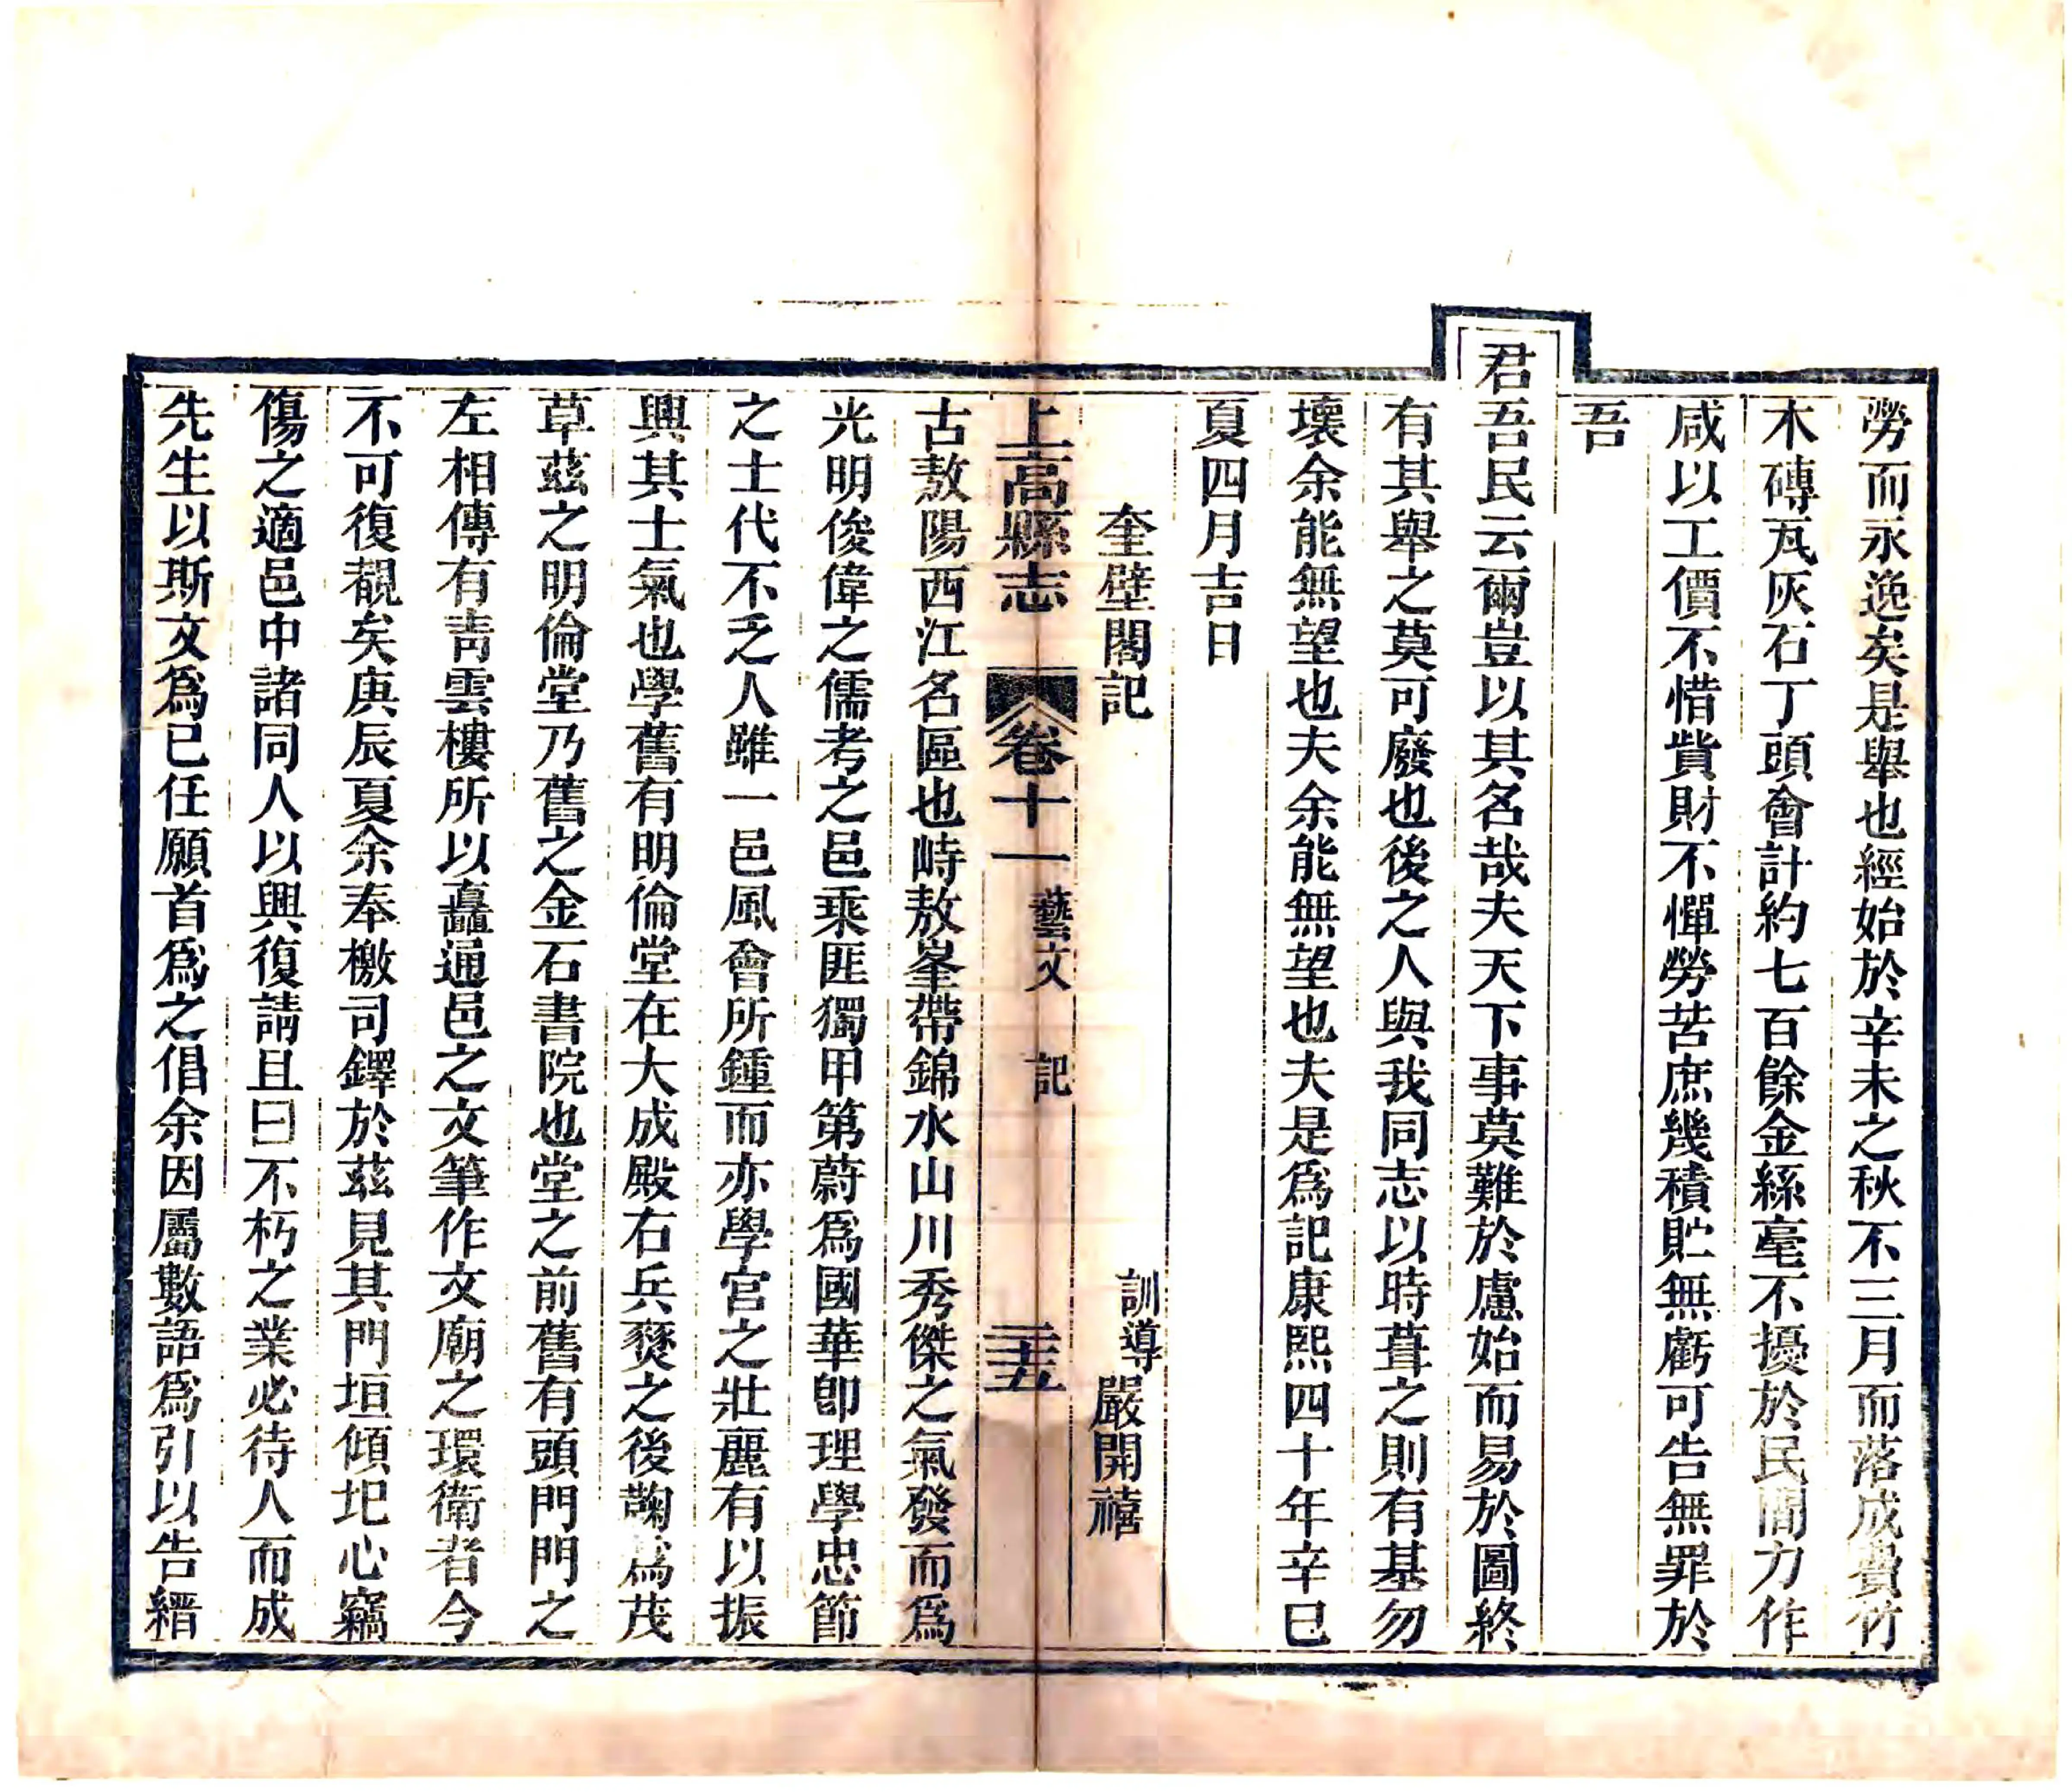 勞而永逸矣是舉也經始於辛未之秋不三月而落成費竹
木磚瓦灰石丁頭會計約七百餘金絲毫不擾於民間力作
咸以工價不惜貲財不憚勞苦庶幾積貯無虧可告無罪於
吾
君吾民云爾豈以其名哉夫天下事莫難於慮始而易於圖終
有其舉之莫可廢也後之人與我同志以時葺之則有基勿
壞余能無望也夫余能無望也夫是爲記康熙四十年辛巳
夏四月吉日
奎壁閣記 訓導嚴開禧
上高縣志 卷十一 藝文 記 三十五
古敖陽西江名區也峙敖峯帶錦水山川秀傑之氣發而爲
光明俊偉之儒考之邑乘匪獨甲第蔚爲國華卽理學忠節
之士代不乏人雖一邑風會所鍾而亦學宮之壯麗有以振
興其士氣也學舊有明倫堂在大成殿右兵燹之後鞠爲茂
草茲之明倫堂乃舊之金石書院也堂之前舊有頭門門之
左相傳有靑雲樓所以矗通邑之文筆作文廟之環衛者今
不可復覩矣庚辰夏余奉檄司鐸於茲見其門垣傾圮心竊
傷之適邑中諸同人以興復請且曰不朽之業必待人而成
先生以斯文爲已任願首爲之倡余因屬數語爲引以告縉